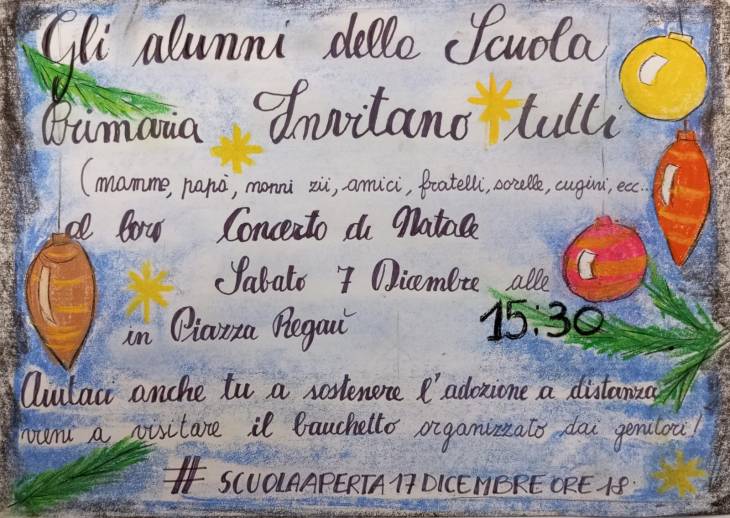 Gli alunni della Scuola
Primaria Invitano tutti
(mamme, papà, nonni zii, amici, fratelli, sorelle, cugini, ecc...
al loro Concerto di Natale
Sabato 7 Dicembre alle
in Piazza Regaù 15:30
Aiutaci anche tu a sostenere l'adozione a distanza
vieni a visitare il banchetto organizzato dai genitori!
# SCUOLAAPERTA 17 DICEMBRE ORE 18.